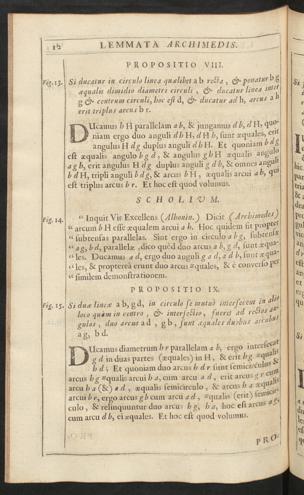 12 LEMMATA ARCHIMEDIS.
PROPOSITIO VIII.
Fig. 13. Si ducatur in circulo linea quælibet a b recta, & ponatur b g
æqualis dimidio diametri circuli, & ducatur linea inter
g & centrum circuli, hoc est d, & ducatur ad h, arcus a h
erit triplus arcus b r.
Ducamus b H parallelam a b, & jungamus d b, d H, quo-
niam ergo duo anguli d b H, d H b, sunt æquales, erit
angulus H d g duplus anguli d b H. Et quoniam b d g
est æqualis angulo b g d, & angulus g b H æqualis angulo
a g b, erit angulus H d g duplus anguli g d b, & omnes anguli
b d H, tripli anguli b d g, & arcus b H, æqualis arcui a b, qui
est triplus arcus b r. Et hoc est quod volumus.
SCHOLIVM.
Fig. 14. " Inquit Vir Excellens (Alhonin.) Dicit (Archimedes)
" arcum b H esse æqualem arcui a h. Hoc quidem sit propter
" subtensas parallelas. Sint ergo in circulo a b g, subtensæ
" a g, b d, parallelæ, dico quòd duo arcus a b, g d, sunt æqua-
" les. Ducamus a d, ergo duo anguli g a d, a d b, sunt æqua-
" les, & proptereà erunt duo arcus æquales, & è converso per
" similem demonstrationem.
PROPOSITIO IX.
Fig. 15. Si duæ lineæ a b, g d, in circulo se mutuò intersecent in alio
loco quàm in centro, & intersectio, fuerit ad rectos an-
gulos, duo arcus a d, g b, sunt æquales duobus arcubus
a g, b d.
Ducamus diametrum h r parallelam a b, ergo intersecat
g d in duas partes (æquales) in H, & erit h g, æqualis
h d; Et quoniam duo arcus h d r sunt semicirculus &
arcus h g æqualis arcui h a, cum arcu a d, erit arcus g r cum
arcu h a (&) a d, æqualis semicirculo, & arcus h a æqualis
arcui b r, ergo arcus g b cum arcu a d, æqualis (erit) semicir-
culo, & relinquuntur duo arcus h g, h a, hoc est arcus a g,
cum arcu d b, ei æquales. Et hoc est quod volumus.
PRO-